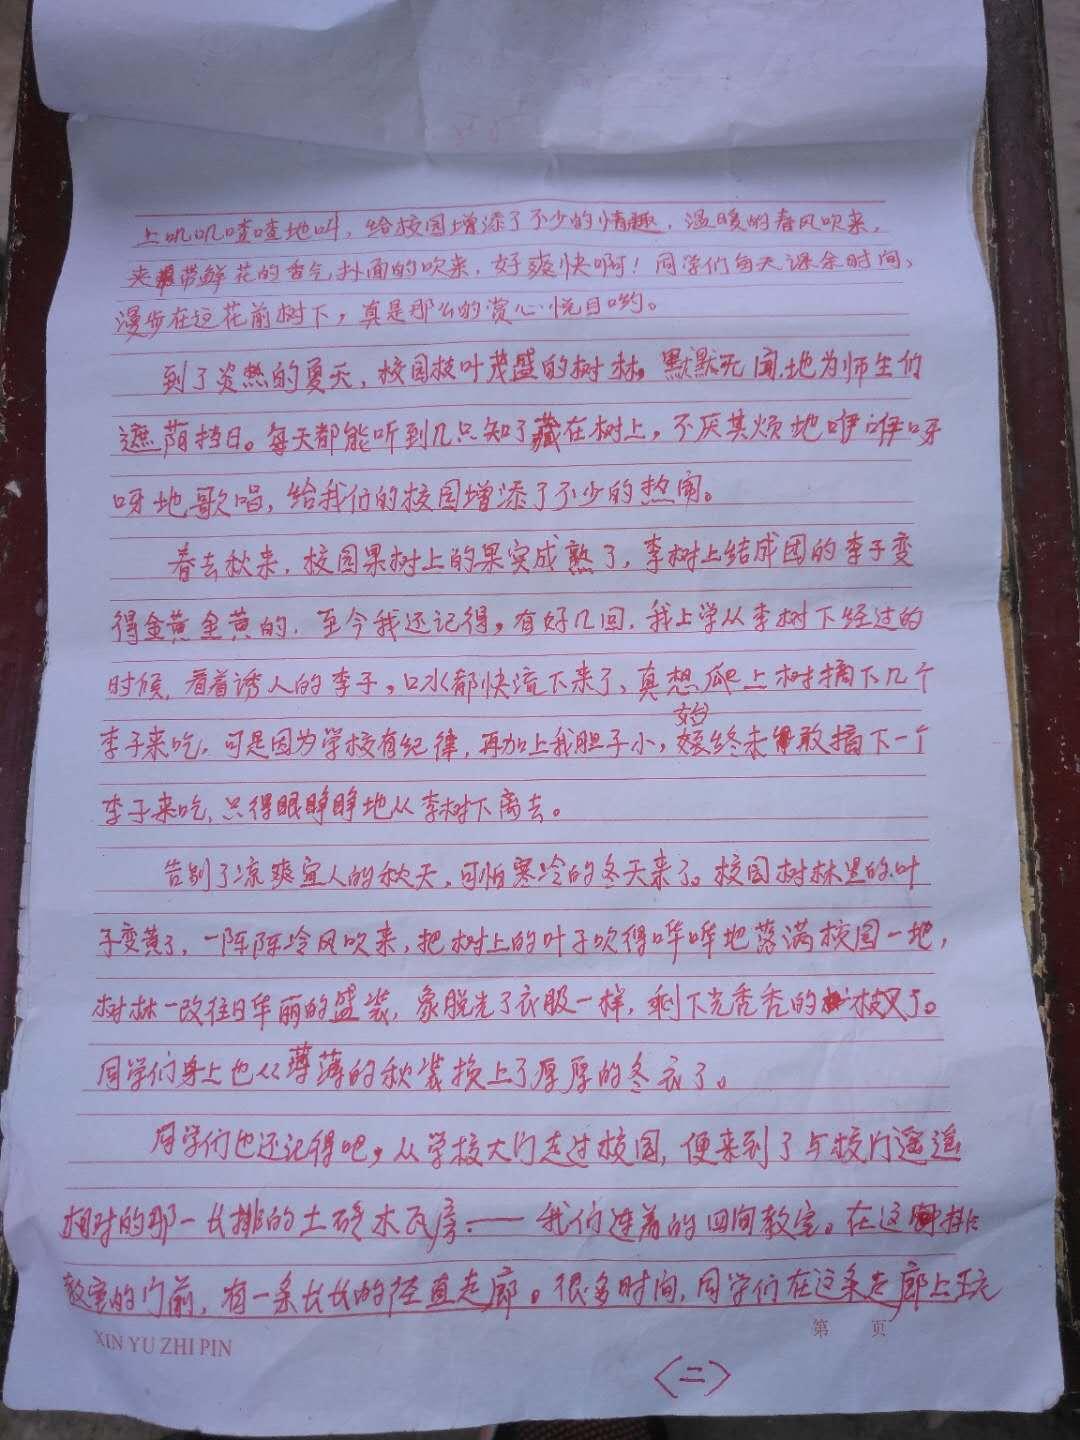 上叽叽喳喳地叫，给校园增添了不少的情趣，温暖的春风吹来，
夹带鲜花的香气，扑面的吹来，好爽快啊！同学们每天课余时间，
漫步在这花前树下，真是那么的赏心悦目哟。
到了炎热的夏天，校园枝叶茂盛的树林。默默无闻地为师生们
遮荫挡日。每天都能听到几只知了藏在树上，不厌其烦地咿咿呀
呀地歌唱，给我们的校园增添了不少的热闹。
春去秋来，校园果树上的果实成熟了，李树上结成团的李子变
得金黄金黄的，至今我还记得，有好几回，我上学从李树下经过的
时候，看着诱人的李子，口水都快流下来了，真想爬上树摘下几个
李子来吃，可是因为学校有纪律，再加上我胆子小，始终未敢摘下一个
李子来吃，只得眼睁睁地从李树下离去。
告别了凉爽宜人的秋天，可怕寒冷的冬天来了。校园树林里的叶
子变黄了，一阵阵冷风吹来，把树上的叶子吹得哗哗地落满校园一地，
树林一改往日华丽的盛装，象脱光了衣服一样，剩下光秃秃的枝叉了。
同学们身上也从薄薄的秋装换上了厚厚的冬衣了。
同学们也还记得吧，从学校大门走过校园，便来到了与校门遥遥
相对的那一长排的土砖木瓦房——我们连着的四间教室。在这排
教室的门前，有一条长长的径直走廊。很多时间，同学们在这条走廊上玩
XIN YU ZHI PIN
第 页
〈二〉